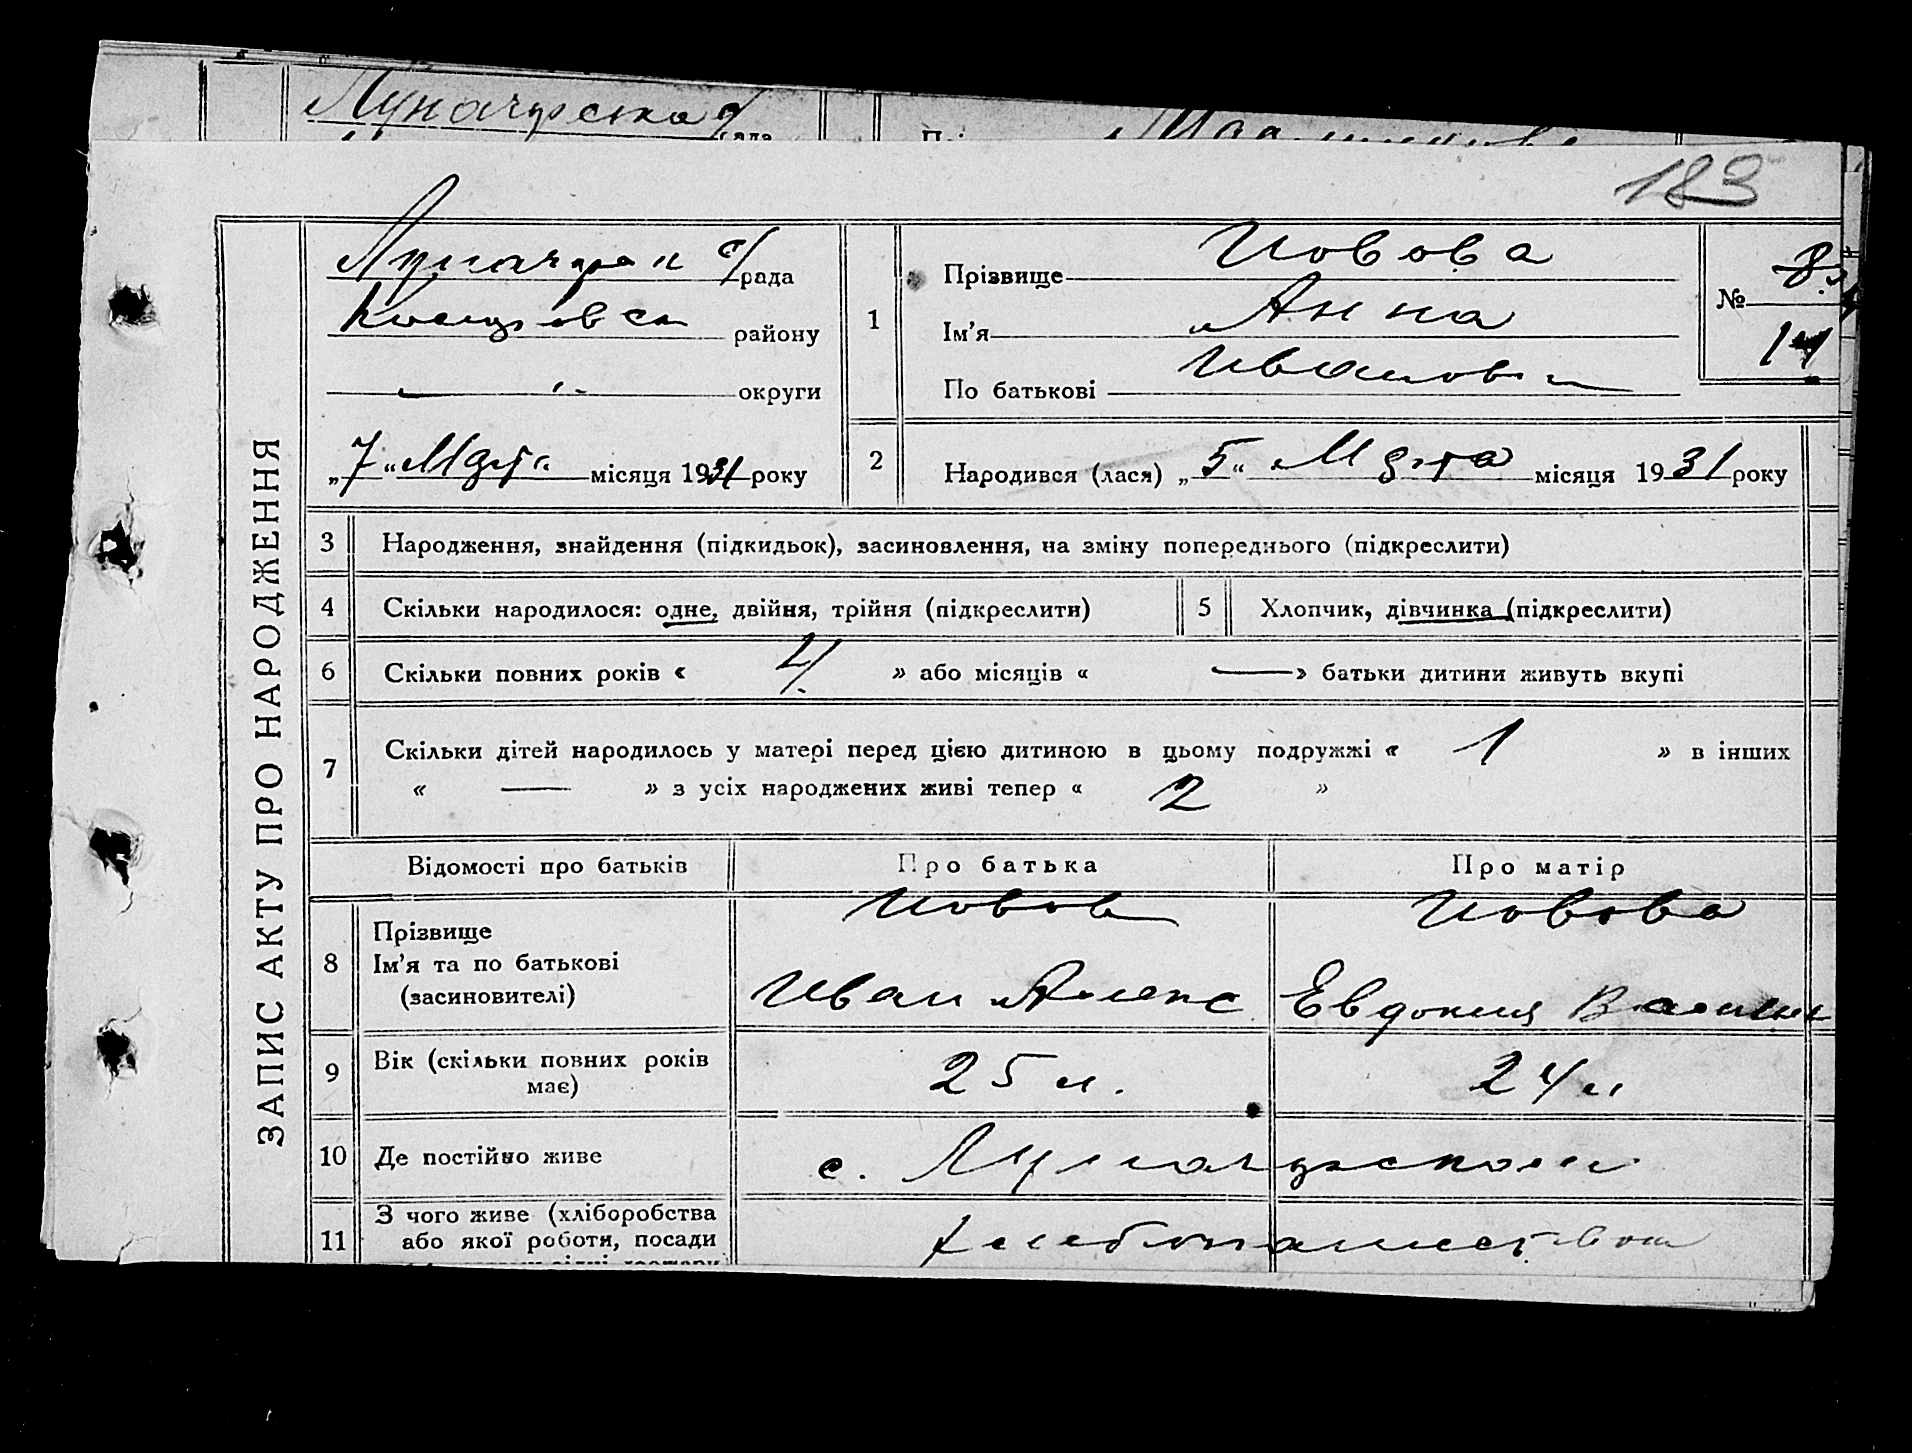 Луначарська с/
рада
183
ЗАПИС АКТУ ПРО НАРОДЖЕННЯ
Луначарск с/рада
району
округи
„7“ Март місяця 1931 року
1
Прізвище Иовова
Ім’я Анна
По батькові Иванов
№ 8
14
2
Народився (лася) „5“ Марта місяця 1931 року
3 Народження, знайдення (підкидьок), засиновлення, на зміну попереднього (підкреслити)
4 Скільки народилося: одне, двійня, трійня (підкреслити)
5 Хлопчик, дівчинка (підкреслити)
6 Скільки повних років « 4 » або місяців « — » батьки дитини живуть вкупі
7 Скільки дітей народилось у матері перед цією дитиною в цьому подружжі « 1 » в інших
« — » з усіх народжених живі тепер « 2 »
Відомості про батьків Про батька Про матір
8 Прізвище
Ім’я та по батькові
(засиновителі)
Иовов
Иван Алекс
Иовова
Евдокия Васильев
9 Вік (скільки повних років
має)
25 л.
24 л
10 Де постійно живе
с. Луначарском
11 З чого живе (хліборобства
або якої роботи, посади
хлебопашеством